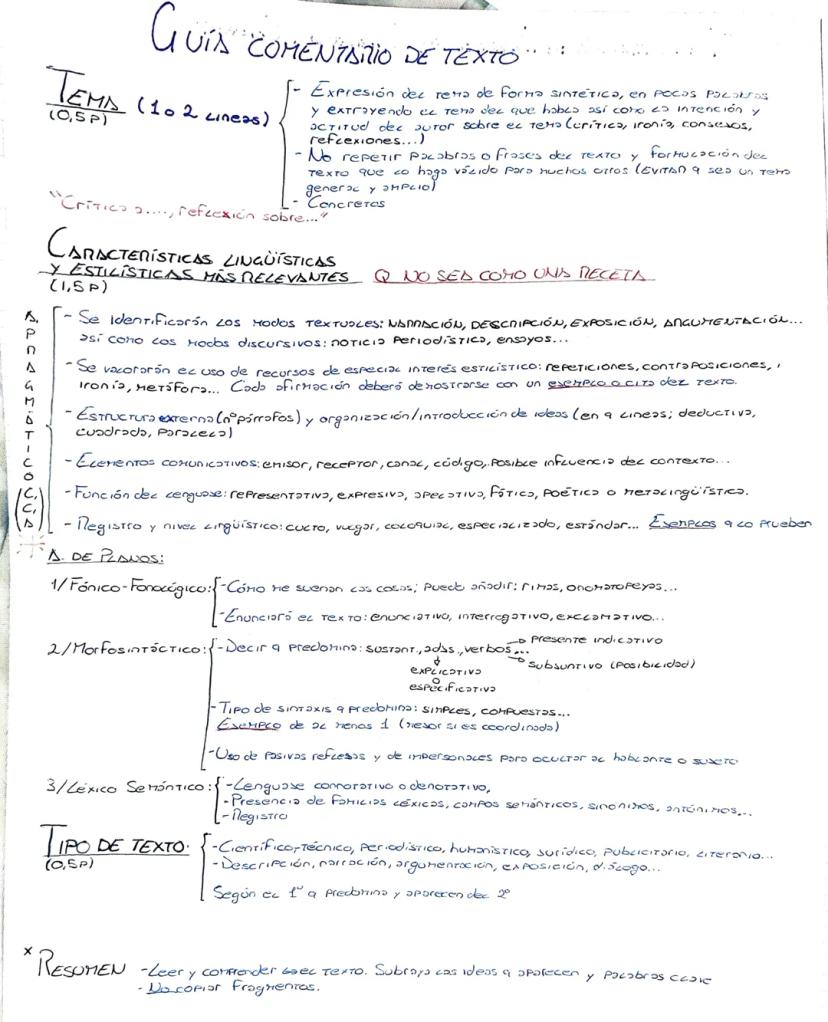 GUÍA COMENTARIO DE TEXTO
TEMA (1 o 2 LINEAS)
(0,5 P)
- Expresión del tema de forma sintética, en pocas palabras
y extrayendo el tema del que habla así como la intención y
actitud del autor sobre el tema (crítica, ironía, consejos,
reflexiones...)
- No repetir palabras o frases del texto y formulación del
texto que lo haga válido para muchos otros (EVITAR q sea un tema
general y amplio)
- Concretas
"Crítica a...., reflexión sobre..."
CARACTERÍSTICAS LINGÜÍSTICAS
Y ESTILÍSTICAS MÁS RELEVANTES Q NO SEA COMO UNA RECETA
(1,5 P)
A. PRAGMÁTICO (C.C.A)
- Se identificarán los modos textuales: NARRACIÓN, DESCRIPCIÓN, EXPOSICIÓN, ARGUMENTACIÓN...
así como los modos discursivos: noticia periodística, ensayos...
- Se valorarán el uso de recursos de especial interés estilístico: repeticiones, contraposiciones,
ironía, metáfora... Cada afirmación deberá demostrarse con un ejemplo o cita del texto.
- Estructura externa (nº párrafos) y organización/introducción de ideas (en q lineas; deductiva,
cuadrada, paralela)
- Elementos comunicativos: emisor, receptor, canal, código, posible influencia del contexto...
- Función del lenguaje: representativa, expresiva, apelativa, fática, poética o metalingüística.
- Registro y nivel lingüístico: culto, vulgar, coloquial, especializado, estándar... Ejemplos q lo prueben
A. DE PLANOS:
1/ Fónico-Fonológico: - Cómo me suenan las cosas; puedo añadir: rimas, onomatopeyas...
- Enunciará el texto: enunciativo, interrogativo, exclamativo...
2/ Morfosintáctico: - Decir q predomina: sustant., adjs., verbos...
→ presente indicativo
→ subjuntivo (posibilidad)
explicativo
o
especificativo
- Tipo de sintaxis q predomina: simples, compuestas...
Ejemplo de al menos 1 (mejor si es coordinada)
- Uso de pasivas reflejas y de impersonales para ocultar al hablante o sujeto
3/ Léxico Semántico: - Lenguaje connotativo o denotativo,
- Presencia de familias léxicas, campos semánticos, sinónimos, antónimos...
- Registro
TIPO DE TEXTO:
(0,5 P)
- Científico-técnico, periodístico, humanístico, jurídico, publicitario, literario...
- Descripción, narración, argumentación, exposición, diálogo...
Según el 1º q predomina y aparecen del 2º
* RESUMEN - Leer y comprender el texto. Subraya las ideas q aparecen y palabras clave
- No copiar fragmentos.